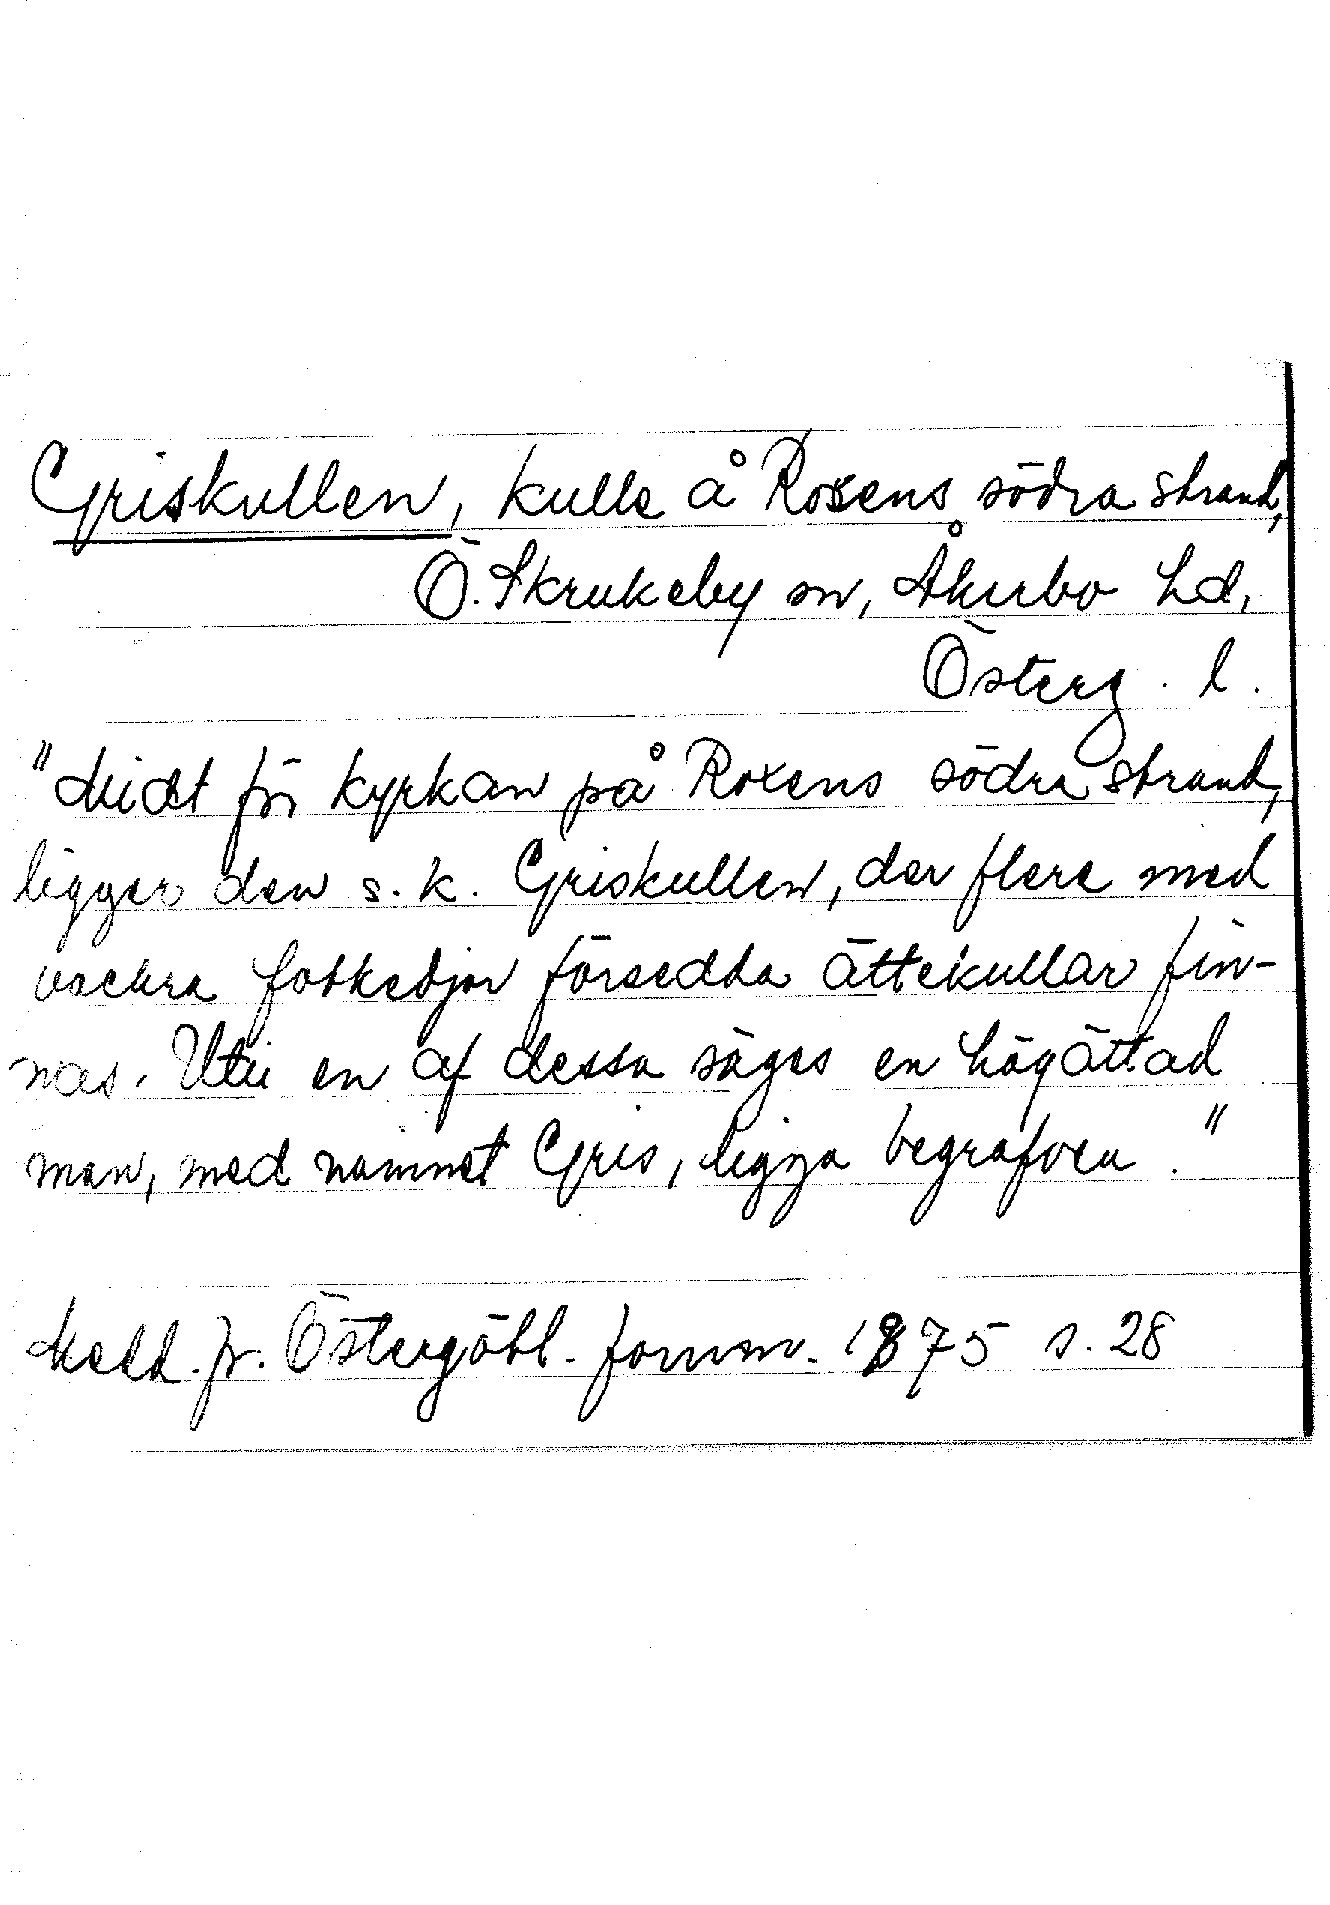 Griskullen, kulle å Roxens södra strand,
Ö. Skrukeby sn, Åkerbo hd,
Österg. l.
"Midt för kyrkan på Roxens södra strand,
ligger den s. k. Griskullen, der flere med
vackra fotkedjor försedda ättekullar fin-
nas. Uti en af dessa säges en högättad
man, med namnet Gris, ligga begrafven."
Medd. fr. Östergötl. fornm. 1875 s. 28